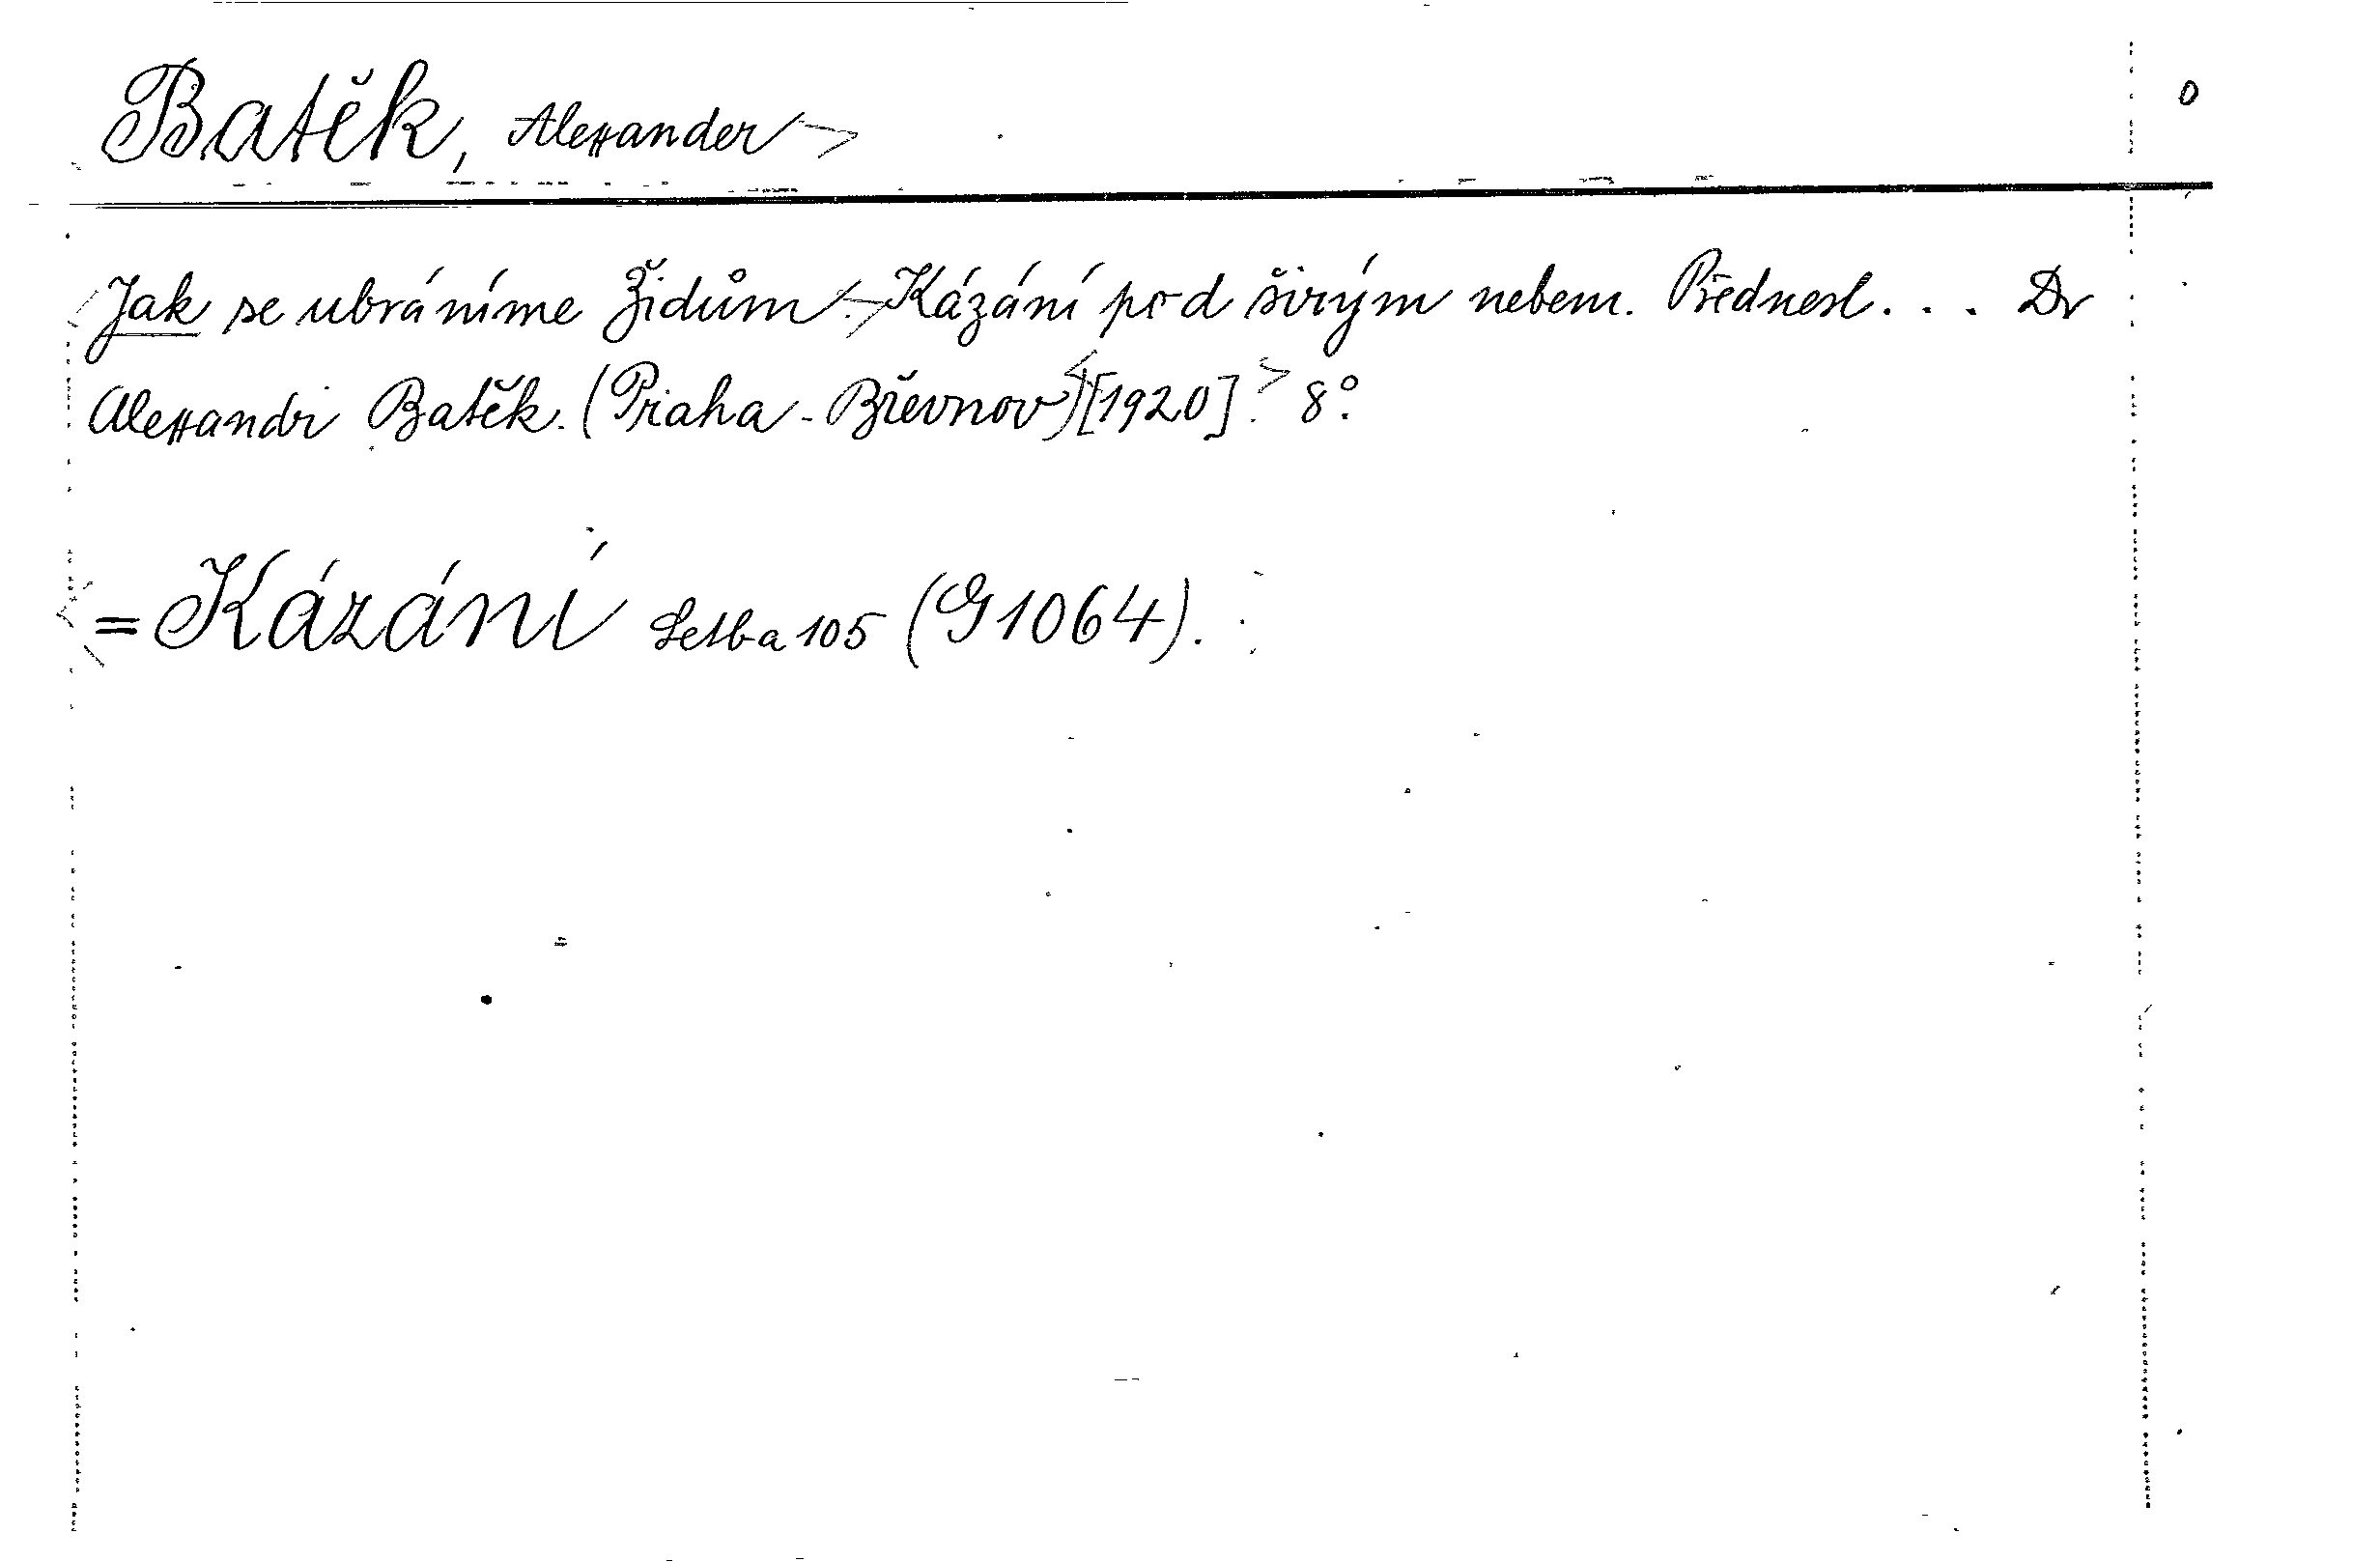 Batěk, Alexander
0
Jak se ubráníme Židům. Kázání pod širým nebem. Přednesl... Dr
Alexandr Batěk. (Praha-Břevnov) [1920]. 8°.
= Kázání Setba 105 (G1064).